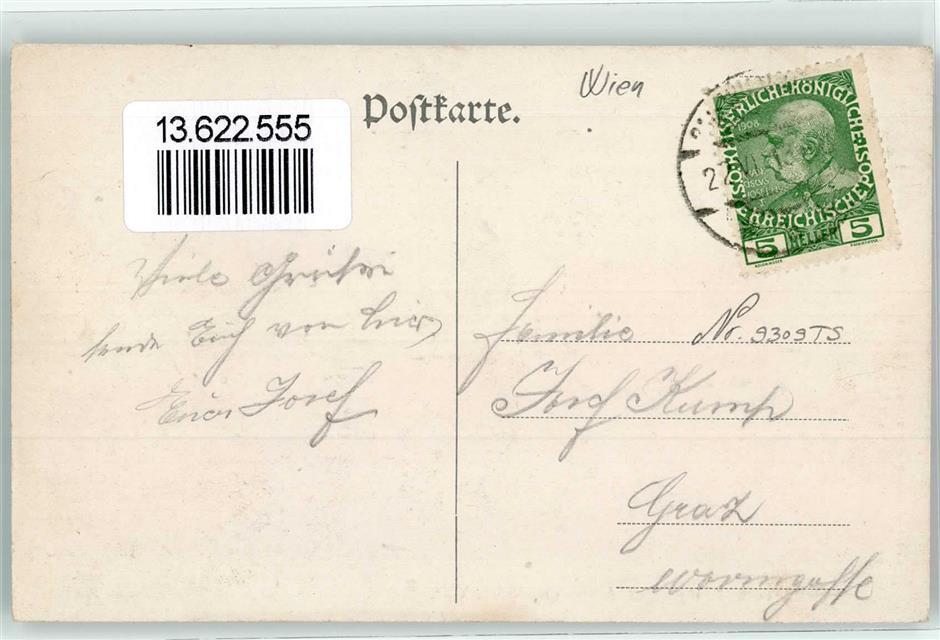 Postkarte.
Wien
13.622.555
KAISERLICHE KÖNIGLICHE ÖSTERREICHISCHE POST
1908
5 HELLER 5
Viele Grüße
sende Euch von hier
Euer Josef
Familie
Nr. 9309TS
Josef Kump
Graz